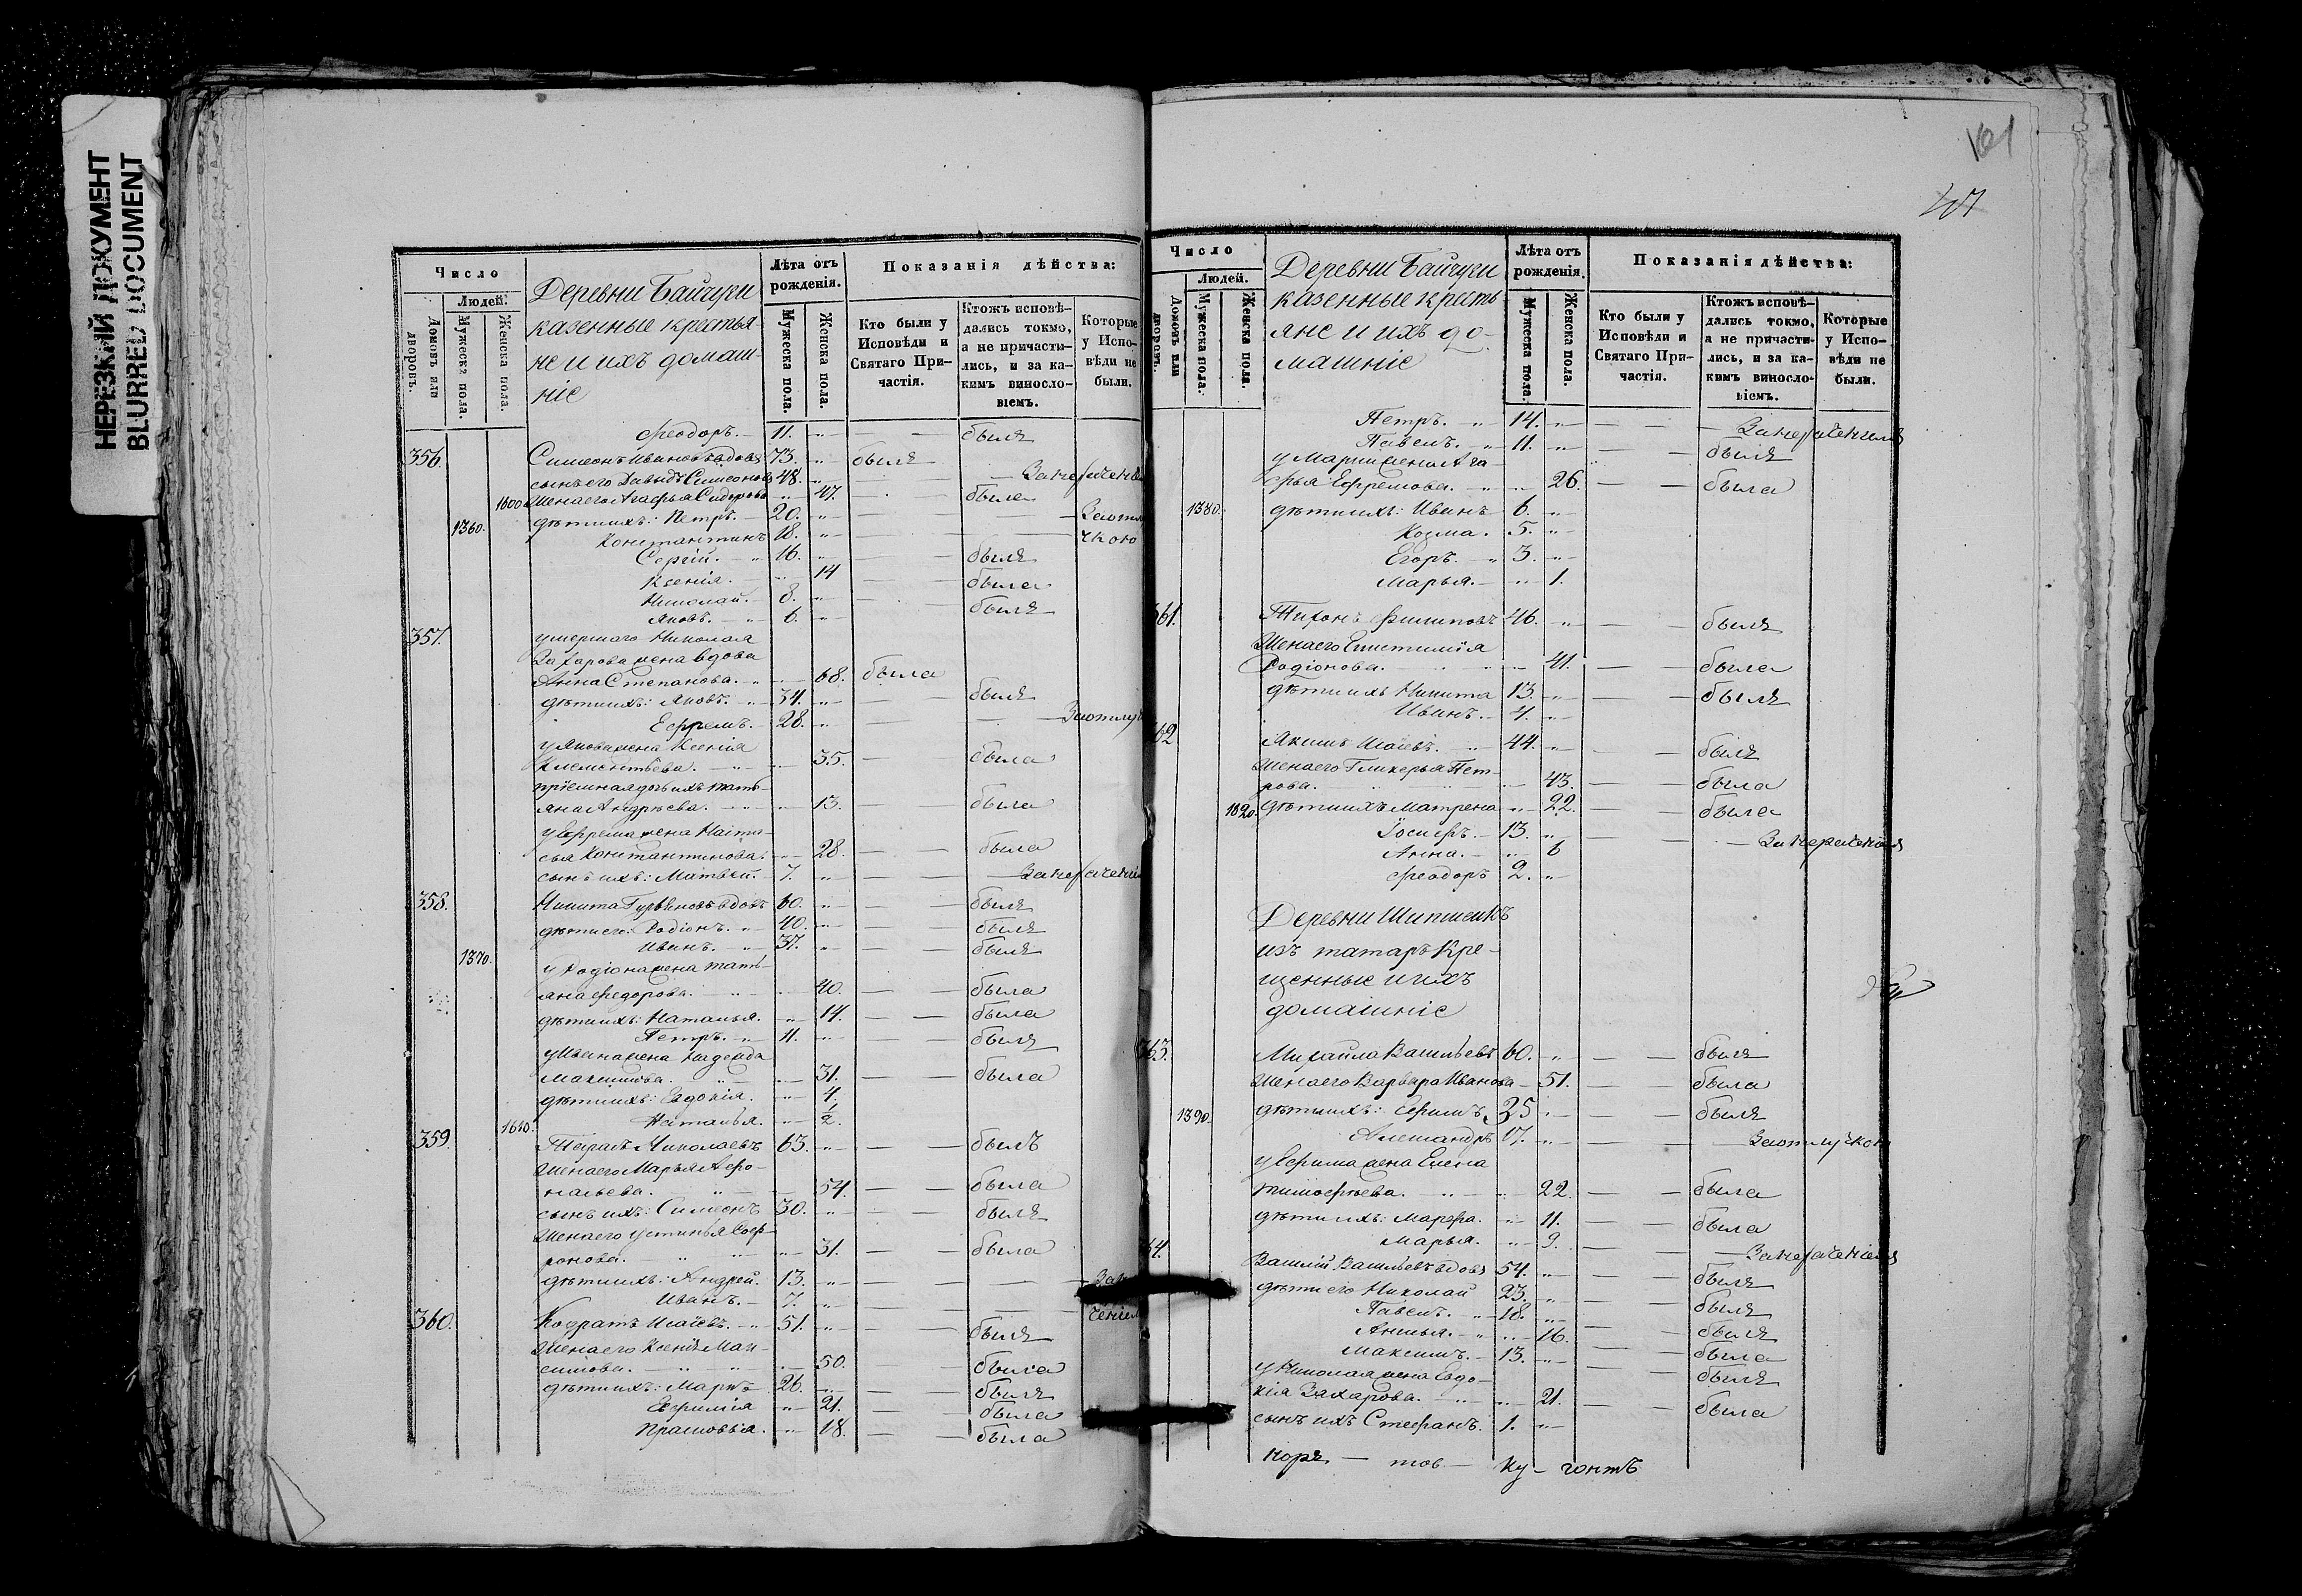 НЕРЕЗКИЙ ДОКУМЕНТ
BLURRED DOCUMENT
Число
Людей.
Домовъ или дворовъ.
Мужеска пола.
Женска пола.
Деревни Байчуги
казенные крестья-
не и ихъ домаш-
ніе
Лѣта отъ рожденія.
Мужеска пола.
Женска пола.
Показанія дѣйства:
Кто были у Исповѣди и Святаго При-частія.
Ктожъ исповѣ-дались токмо, а не причасти-лись, и за ка-кимъ винослo-віемъ.
Которые у Испо-вѣди не были.
Феодоръ. 11. былъ
356. Симеонъ Ивановъ вдовъ 73. былъ
сынъ его Давыдъ Симеоновъ 48. За нерачені
1600 Жена его Агафья Сидорова 47. была
1360. дѣти ихъ: Петръ. 20. За отлу
Константинъ 18. чкою
Сергій. 16. былъ
Ксенія. 14 была
Николай. 8. былъ
Яковъ. 6.
357. умершаго Николая
Захарова жена вдова
Анна Степанова. 68. была
дѣти ихъ: Яковъ. 34. былъ
Ефремъ. 28. За отлу
у Якова жена Ксенія
Климентьева. 35. была
пріемная дочь ихъ Тать-
яна Андреева. 13. была
у Ефрема жена Наста-
сья Константинова. 28. была
сынъ ихъ: Матвей. 7. За нерачені
358. Никита Гурьяновъ вдовъ 60. былъ
дѣти его: Родіонъ. 40. былъ
1370. Иванъ. 37. былъ
у Родіона жена Тать-
яна Федорова. 40. была
дѣти ихъ: Наталья. 14. была
Петръ. 11. былъ
у Ивана жена Надежда
Максимова. 31. была
дѣти ихъ: Евдокія. 4.
1610. Наталья. 2.
359. Тарасъ Николаевъ 63. былъ
Жена его Марья Афо-
насьева. 54. была
сынъ ихъ: Симеонъ 30. былъ
Жена его Устинья Соф-
ронова. 31. была
дѣти ихъ: Андрей. 13. За
Иванъ. 7. ченіем
360. Кодратъ Исаевъ. 51. былъ
Жена его Ксенія Мак-
симова. 50. была
дѣти ихъ: Маркъ 26. былъ
Ефимія 21. была
Прасковья. 18. была
161
Число
Людей.
Домовъ или дворовъ.
Мужеска пола.
Женска пола.
Деревни Байчуги
казенные кресть
яне и ихъ до-
машніе
Лѣта отъ рожденія.
Мужеска пола.
Женска пола.
Показанія дѣйства:
Кто были у Исповѣди и Святаго При-частія.
Ктожъ исповѣ-дались токмо, а не причасти-лись, и за ка-кимъ винослo-віемъ.
Которые у Испо-вѣди не были.
Петръ. 14. За нераченіемъ
Павелъ. 11. былъ
у Марка жена Ага-
фья Ефремова. 26. была
1380. дѣти ихъ: Иванъ 6.
Козма. 5.
Егоръ. 3.
Марья. 1.
361. Тихонъ Филиповъ 46. былъ
Жена его Епистимія
Родіонова. 41. была
дѣти ихъ Никита 13. былъ
Иванъ. 4.
62 Акимъ Исаевъ. 44. былъ
Жена его Гликерья Пет-
рова. 43. была
1620. дѣти ихъ Матрена 22. была
Іосифъ. 13. За нераченіемъ
Анна. 6
Феодоръ 2.
Деревни Шипшенкъ
изъ татаръ Кре-
щенные и ихъ
домашніе
363. Михайла Васильевъ 60. былъ
Жена его Варвара Иванова 51. была
1390. дѣти ихъ: Ефимъ 25 былъ
Александръ 17. За отлучкою
у Ефима жена Елена
Тимофѣева. 22. была
дѣти ихъ: Марфа. 11. была
Марья. 9. За нераченіемъ
64. Василій Васильевъ вдовъ 54. былъ
дѣти его Николай 23. былъ
Павелъ. 18. былъ
Анисья. 16. была
Максимъ. 13. былъ
у Николая жена Евдо-
кія Захарова. 21. была
сынъ ихъ Стефанъ. 1.